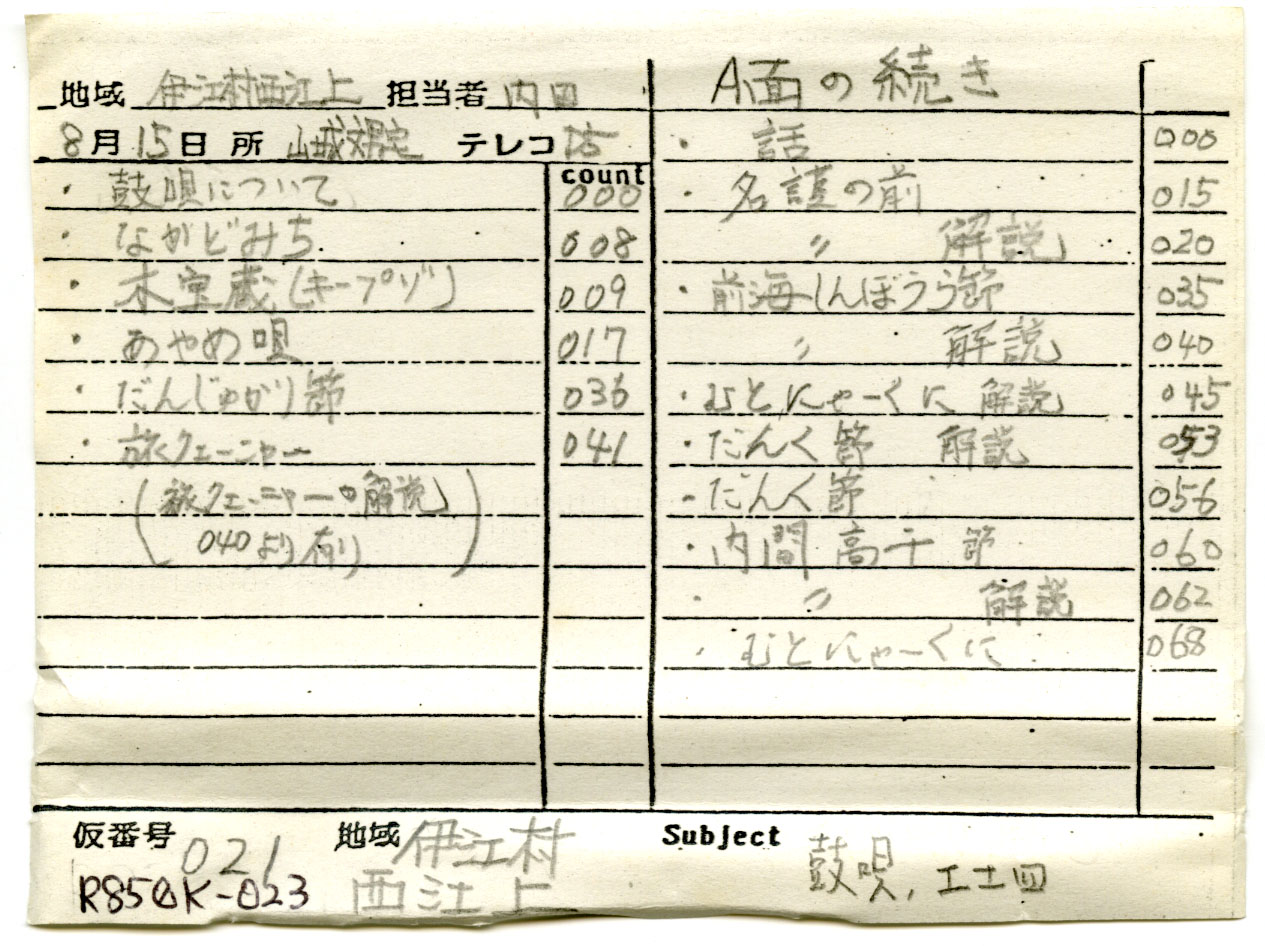 地域 伊江村西江上 担当者 内田
8月15日 所 山城文男宅 テレコ
count
・ 鼓唄について 000
・ ながどみち 008
・ 木宝蔵(キープゾ) 009
・ あやめ唄 017
・ だんじゅかり節 036
・ 旅クェーニャー 041
(旅クェーニャーの解説
040より有り)
A面の続き
・ 話 000
・ 名護の前 015
〃 解説 020
・ 前海しんぼうう節 035
〃 解説 040
・むとにゃーくに 解説 045
・だんく節 解説 053
-だんく節 056
・内間高干節 060
・ 〃 解説 062
・ むとにゃーくに 068
仮番号 021
R850K-023
地域 伊江村
西江上
Subject 鼓唄,エ工四